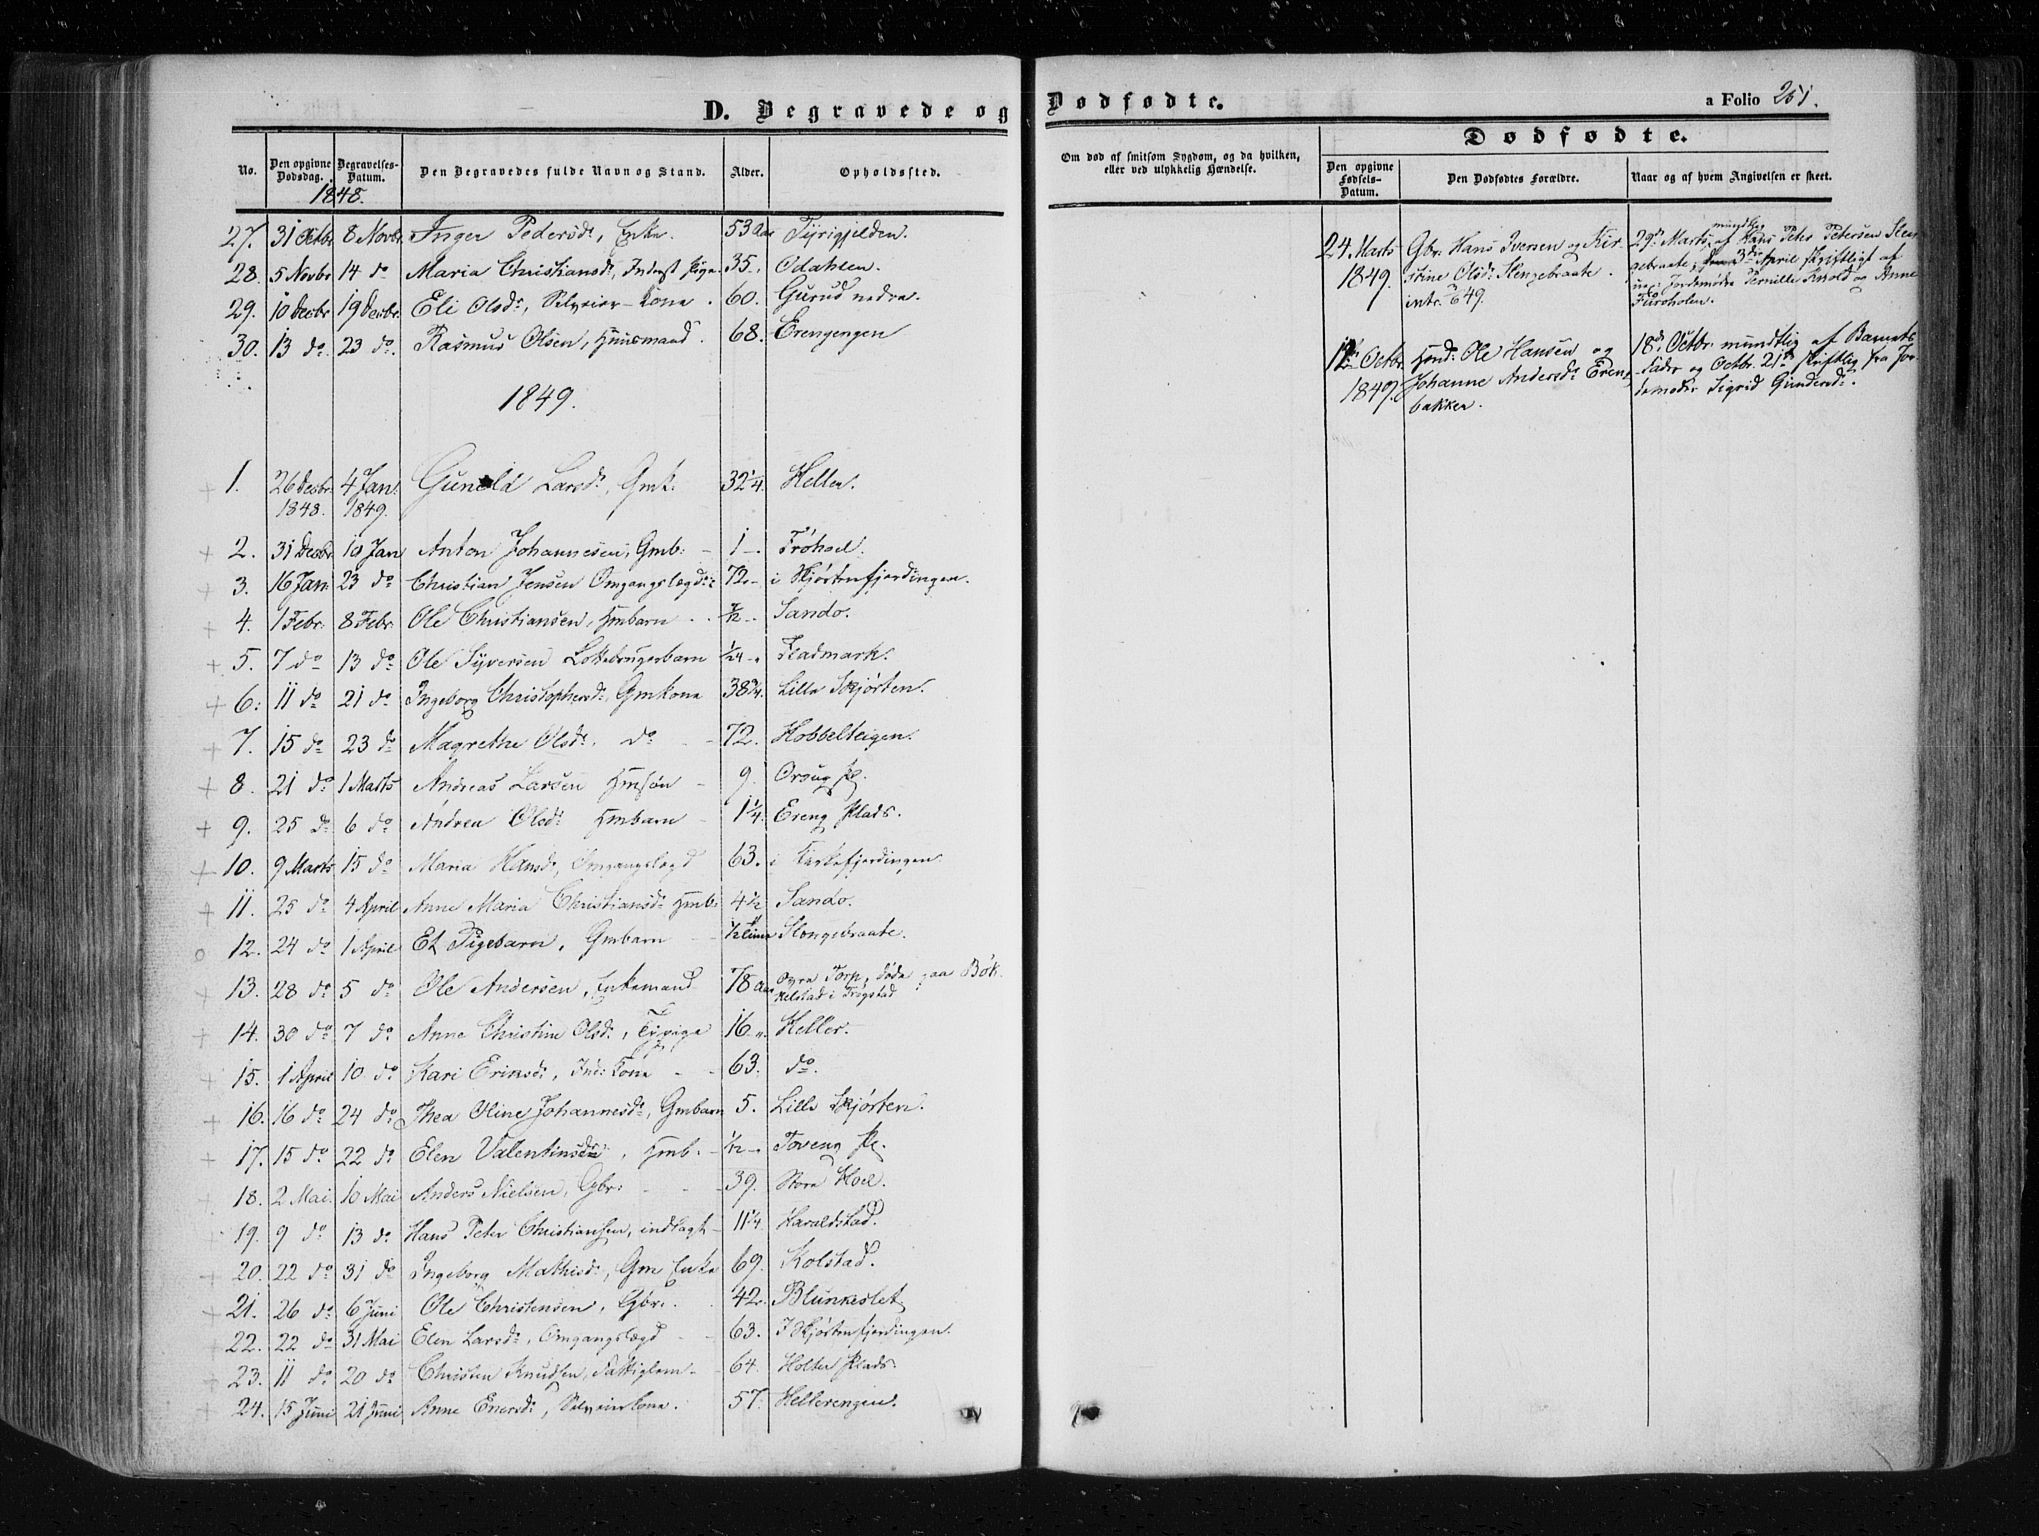 D. Begravede og Dødfødte.
a Folio 251.
Dødfødte.
No.
Den opgivne Dødsdag.
Begravelses-Datum.
Den Begravedes fulde Navn og Stand.
Alder.
Opholdssted.
Om død af smitsom Sygdom, og da hvilken, eller ved ulykkelig Hændelse.
Den opgivne Fødsels-Datum.
Den Dødfødtes Forældre.
Naar og af hvem Angivelsen er skeet.
1848.
27. 31 Octbr 8 Novbr. Inger Pedersdr, Enke. 53 Aar Tyrigjelden.
28. 5 Novbr 14 do Maria Christiansdr, Inderst Pige 35. Odahlen.
29. 10 Decbr 19 Decbr. Eli Olsdr, Selveier-Kone. 60. Gurud nedre.
30. 13 do. 23 do. Rasmus Olsen, Huusmand. 68. Erengengen
1849.
1. 26 Decbr. 1848. 4 Jan. 1849. Gunild Larsdr, Gmk. 32 1/4. Heller.
2. 31 Decbr. 10 Jan Anton Johannesen, Gmb: 1 Frøhoel.
3. 16 Jan. 23 do Christian Jensen Omgangslægd: 72 i Skjørtenfjerdingen.
4. 1 Febr. 8 Febr. Ole Christiansen, Hmbarn Sando.
5. 7 do 13 do Ole Syversen Lottebrugerbarn 1/24 Fladmark.
6. 11 do 21 do Ingeborg Christophersdr, Gmkone 38 3/4. Lille Skjørten.
7. 15 do 23 do Magrethe Olsdr. do 72. Hobbelteigen.
8. 21 do 1 Marts Andreas Larsen Hmsøn 9. Oroug Pl.
9. 25 do 6 do Andrea Olsdr Hmbarn 1 1/4. Ereng Plads.
10. 9 Marts 15 do Maria Hansdr, Omgangslægd 63. i Kirkefjerdingen
11. 25 do 4 April Anne Maria Christiansdr Hmb: 4 1/2 Sando.
12. 24 do 1 April Et Pigebarn, Gmbarn 1/2 time Slengebraate.
13. 28 do 5 do Ole Andersen, Enkemand 78 Aar Øvre Torp, døde paa Bøkkelstad i Trøgstad
14. 30 do 7 do Anne Christine Olsdr, Typige 16 Heller.
15. 1 April 10 do Kari Eriksdr, Ind: Kone 63. do.
16. 16 do 24 do Thea Oline Johannesdr, Gmbarn 5. Lille Skjørten.
17. 15 do 22 do Elen Valentinsdr, Hmb. 1/12 Toveng Pl.
18. 2 Mai 10 Mai Anders Nielsen, Gbr: 39. Store Hoel.
19. 9 do 13 do Hans Peter Christiansen, indlagt 11 1/4 Haraldstad.
20. 22 do 31 do Ingeborg Mathisdr, Gm Enke 69. Kolstad.
21. 26 do 6 Juni Ole Christensen, Gbr. 42. Blunkeslet
22. 22 do 31 Mai Elen Larsdr, Omgangslægd 63. I Skjørtenfjerdingen.
23. 11 do 20 do Christen Knudsen, Fattiglem 64. Holter Plads.
24. 15 Juni 21 Juni Anne Enersdr, Selveierkone. 57. Hellerengen.
24 Marts 1849. Gbr. Hans Iversen og Kirstine Olsdr Slengebraate. intr.
29de Marts mundtlig af Hans Peter Petersen Slengebraate, 3die April skriftligt af Jordemødre Pernille Krold og Anne Furoholen.
12 Octbr. 1849. Hmd: Ole Hansen og Johanne Andersdr Erengbakken.
18de Octbr. mundtlig af Barnets Fader og Octbr. 21de skriftlig fra Jordemoder Sigrid Gundersdr.